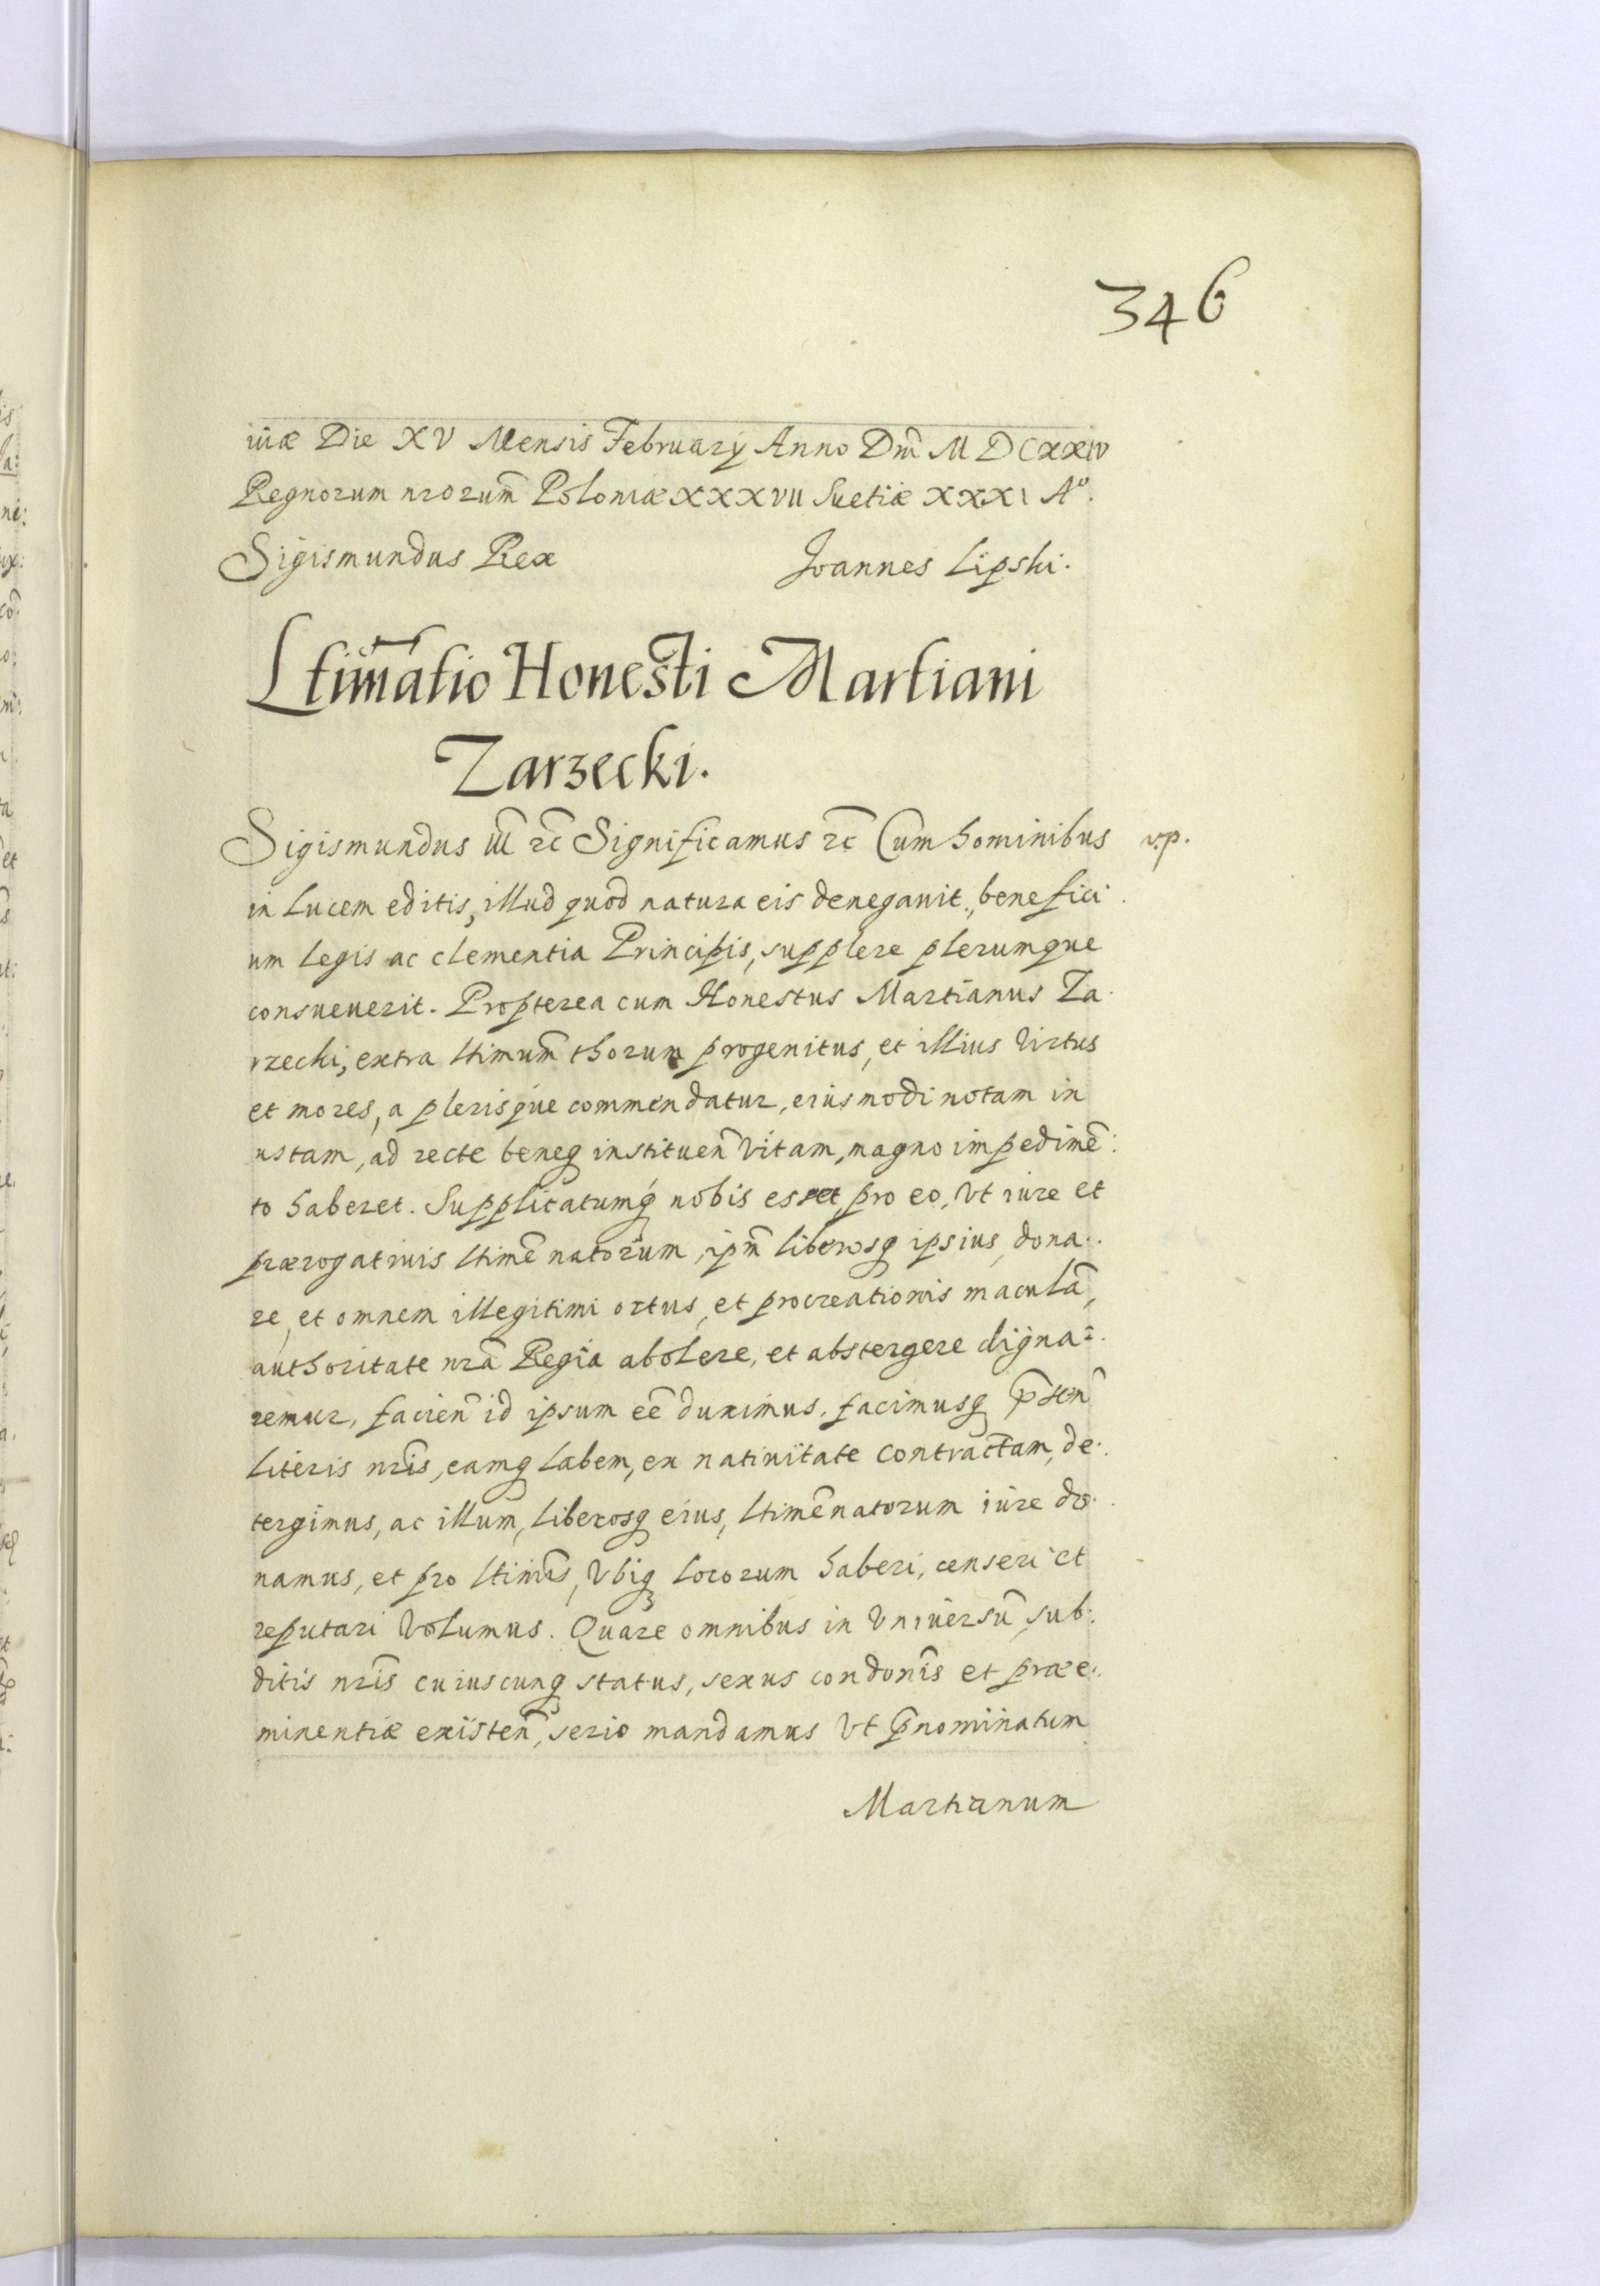 346
iũæ Die XV Mensis Februarÿ Anno Dnĩ M DCXXIV
Regnorum nrorum̃ Poloniæ XXXVII Suetiæ XXXI Aº.
Sigismundus Rex Joannes Lipski.
Ltim̃atio Honesti Martiani
Zarzecki.
Sigismundus IIĨ ꝛc̃ Significamus ꝛc̃ Cum hominibus v.p.
in lucem editis, illud quod natura eis denegavit, benefici
um legis ac clementia Principis, supplere plerumque
consueuerit. Propterea cum Honestus Martianus Za
rzecki, extra ltimum̃ thorum progenitus, et illius Virtus
et mores, a plerisque commendatur, eiusmodi notam in
ustam, ad recte beneq instituen̄ Vitam, magno impedimẽ:
to haberet. Supplicatumq nobis esset, pro eo, Vt iure et
prærogatiuis ltimẽ natorum, ipm̃ liberosq ipsius, dona.
re, et omnem illegitimi ortus, et procreationis maculã,
authoritate nrã Regia abolere, et abstergere digna:
remur, facien̄ id ipsum eẽ duximus, facimusq p̃sen̄
literis nrĩs, eamq labem, ex natiuitate contractam, de.
tergimus, ac illum, liberosq eius, ltimẽ natorum iure do.
namus, et pro ltimĩs, Vbiq locorum haberi, censeri et
reputari Volumus. Quare omnibus in Vniuersũ, sub.
ditis nrĩs cuiuscunq status, sexus condonĩs et præe.
minentiæ existen̄, serio mandamus Vt p̃nominatum
Martianum